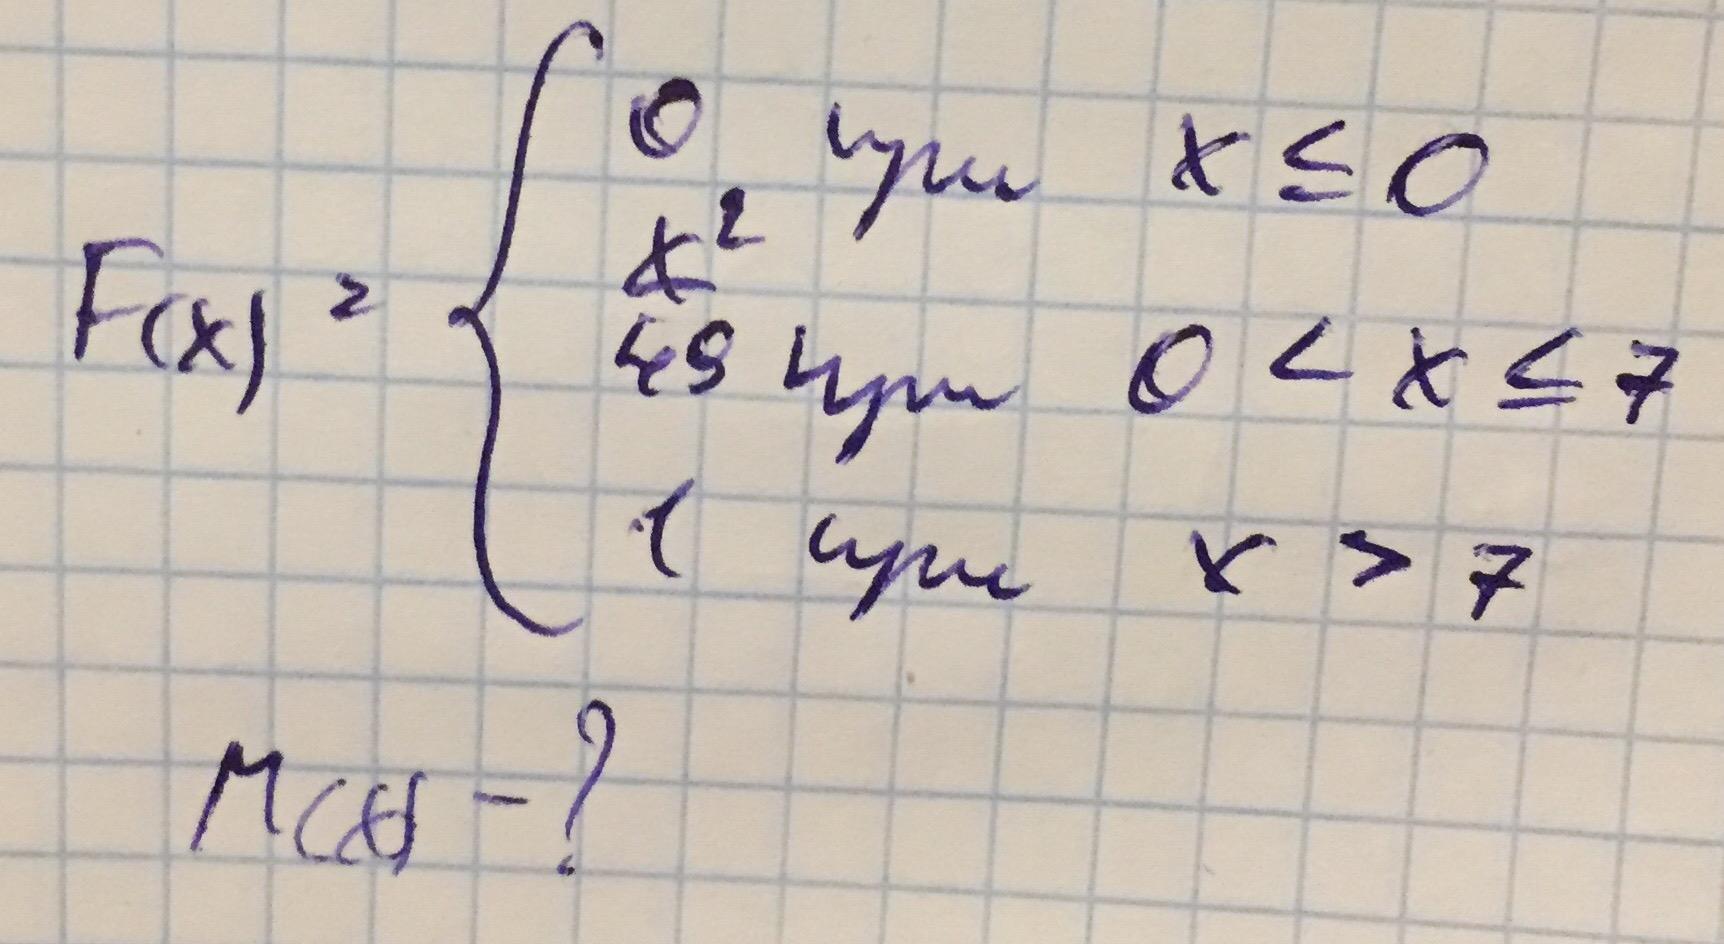 F(x) = { 0 при x ≤ 0
x²/49 при 0 < x ≤ 7
1 при x > 7
M(x) - ?